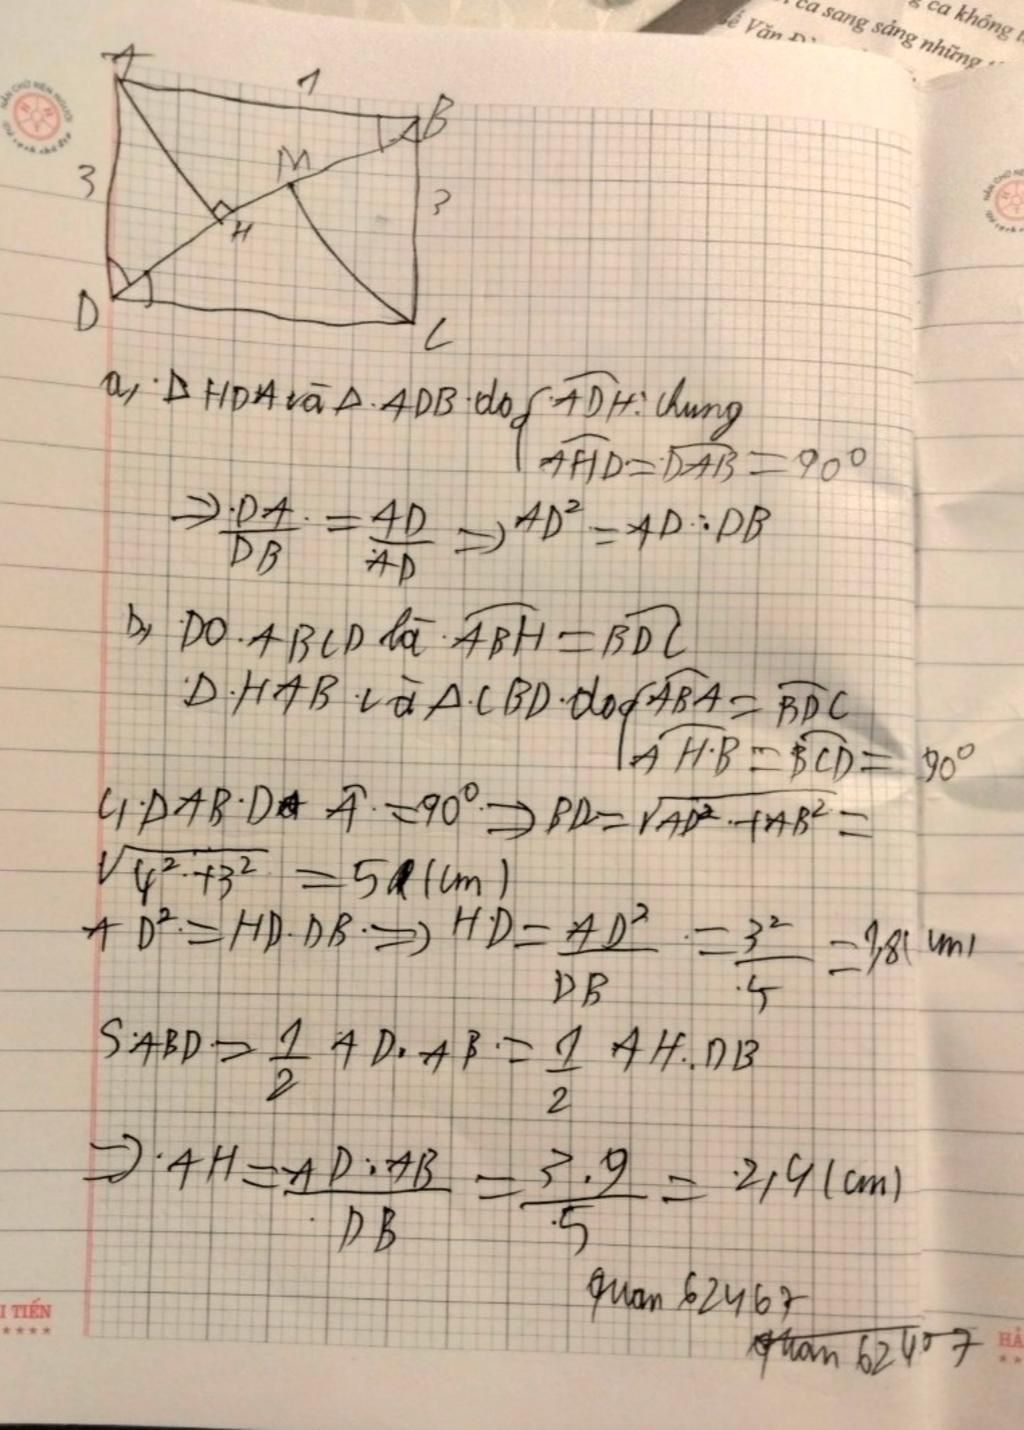 ca sang sảng những
ca không
Văn
A
1
B
M
3
3
H
D
C
a, Δ HDA và Δ.ADB do { ADH: chung
AHD = DAB = 90°
=> DA/DB = AD/AD => AD² = AD.DB
b, DO.ABCD là ABH = BDC
Δ.HAB và Δ.CBD.do { ABA = BDC
AHB = BCD = 90°
C, ΔAB.D A = 90° => BD = √AD² + AB² =
√4² + 3² = 5 (cm)
AD² = HD.DB => HD = AD²/DB = 3²/5 = 1,8(cm)
SABD = 1/2 AD.AB = 1/2 AH.DB
=> AH = AD.AB/DB = 3.9/5 = 2,4 (cm)
quan 62467
quan 62407
I TIẾN
HẢ